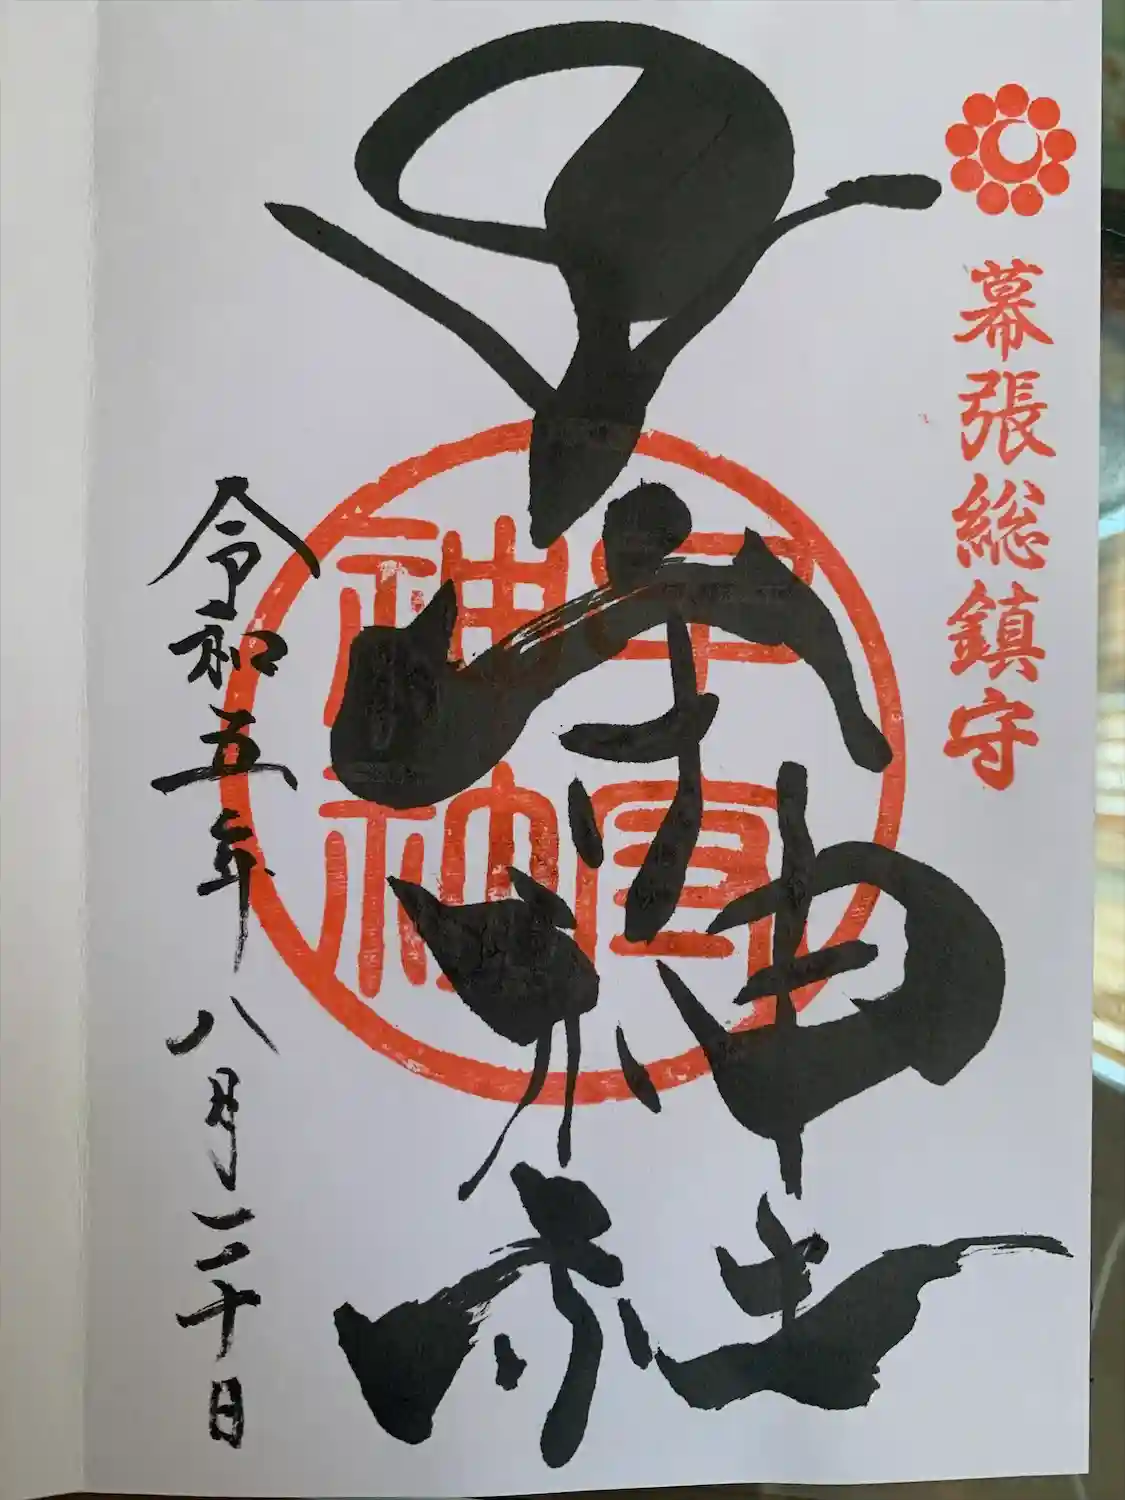 幕張総鎮守
子守神社
子守神社
令和五年八月二十日